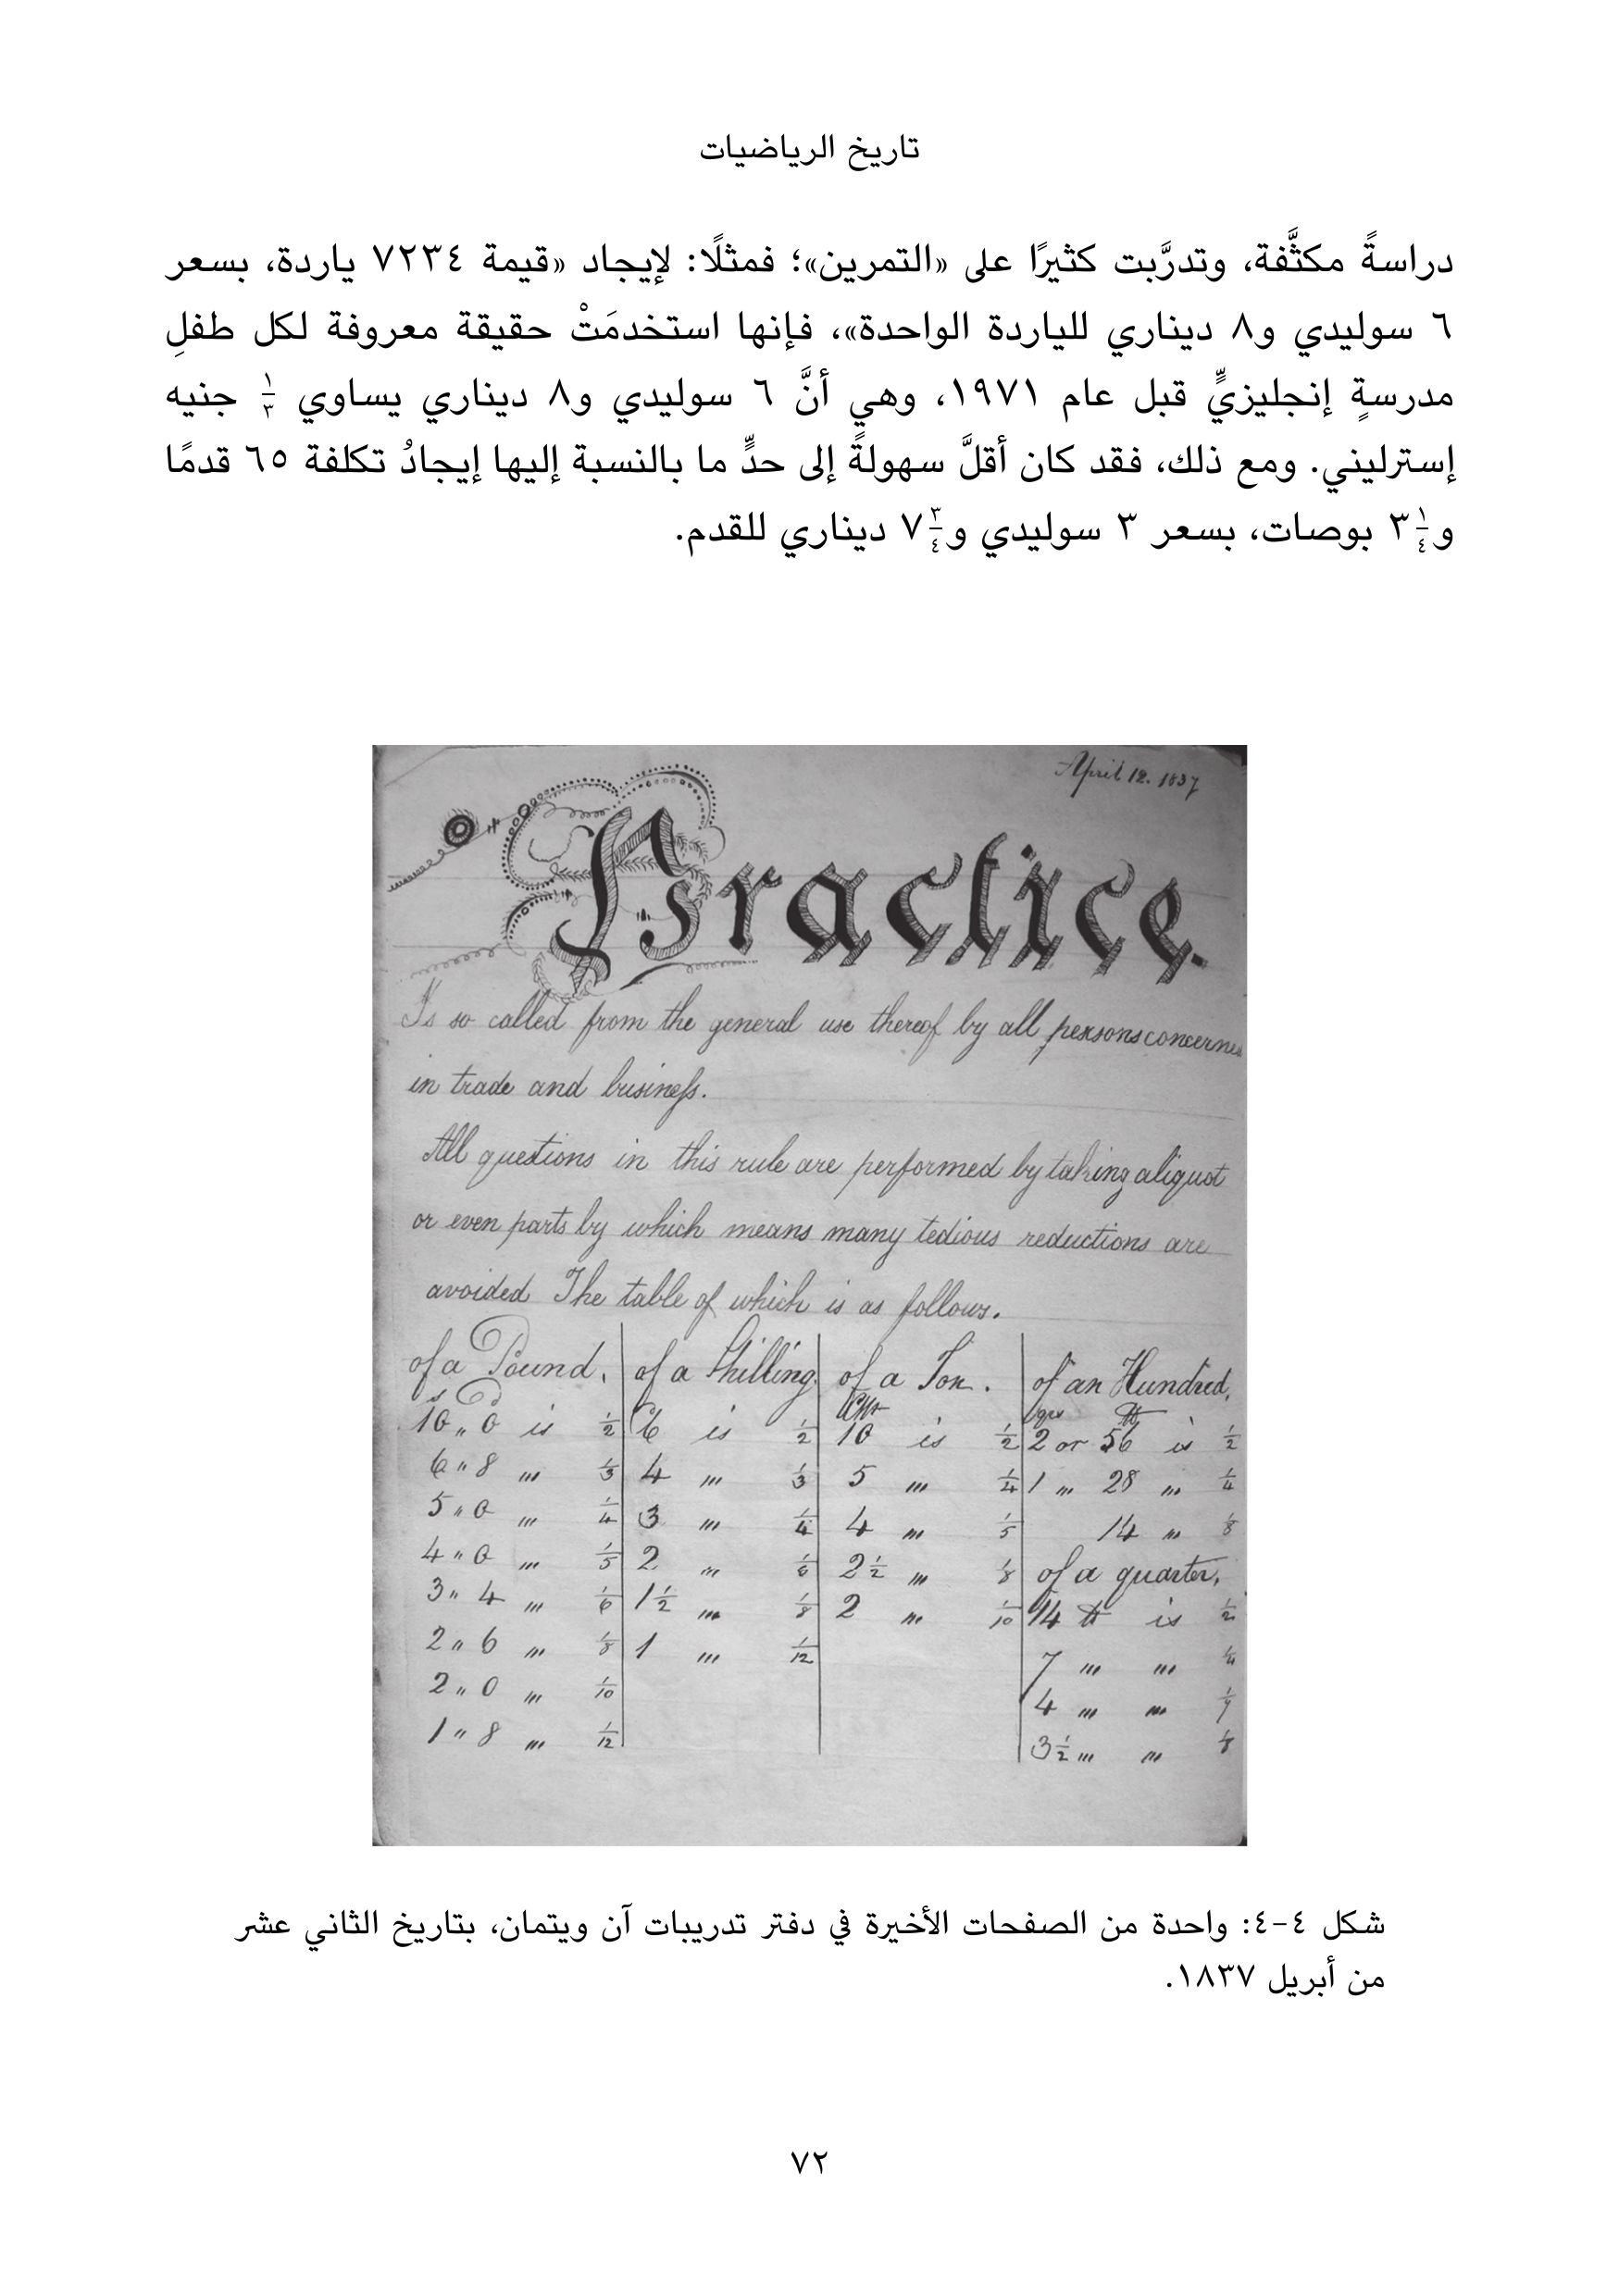 تاريخ الرياضيات
دراسةً مكثَّفة، وتدرَّبت كثيرًا على «التمرين»؛ فمثلًا: لإيجاد «قيمة ٧٢٣٤ ياردة، بسعر
٦ سوليدي و٨ ديناري للياردة الواحدة»، فإنها استخدمَتْ حقيقة معروفة لكل طفلِ
مدرسةٍ إنجليزيٍّ قبل عام ١٩٧١، وهي أنَّ ٦ سوليدي و٨ ديناري يساوي ١/٣ جنيه
إسترليني. ومع ذلك، فقد كان أقلَّ سهولةً إلى حدٍّ ما بالنسبة إليها إيجادُ تكلفة ٦٥ قدمًا
و٣ ١/٤ بوصات، بسعر ٣ سوليدي و٧ ٣/٤ ديناري للقدم.
April 12. 1837
Practice.
Is so called from the general use thereof by all persons concerne
in trade and business.
All questions in this rule are performed by taking aliquot
or even parts by which means many tedious reductions are
avoided The table of which is as follows.
of a Pound. of a Shilling. of a Ton. of an Hundred.
s D Cwt qrs lb
10 " 0 is 1/2 6 is 1/2 10 is 1/2 2 or 56 is 1/2
6 " 8 " 1/3 4 " 1/3 5 " 1/4 1 " 28 " 1/4
5 " 0 " 1/4 3 " 1/4 4 " 1/5 14 " 1/8
4 " 0 " 1/5 2 " 1/6 2 1/2 " 1/8 of a quarter.
3 " 4 " 1/6 1 1/2 " 1/8 2 " 1/10 14 lb is 1/2
2 " 6 " 1/8 1 " 1/12 7 " " 1/4
2 " 0 " 1/10 4 " " 1/7
1 " 8 " 1/12 3 1/2 " " 1/8
شكل ٤-٤: واحدة من الصفحات الأخيرة في دفتر تدريبات آن ويتمان، بتاريخ الثاني عشر
من أبريل ١٨٣٧.
٧٢